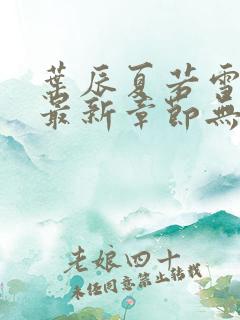 葉辰夏若雪
最新章節無
老娘四十
未经同意禁止转载